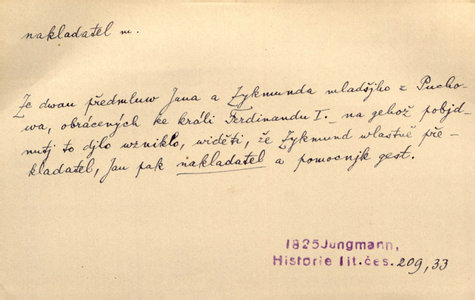 nakladatel m.
Ze dwau předmluw Jana a Zykmunda mladšjho z Pucho-
wa, obrácených ke králi Ferdinandu I. na gehož pobjd-
nutj to djlo wzniklo, widěti, že Zykmund wlastně pře-
kladatel, Jan pak nakladatel a pomocnjk gest.
1825 Jungmann,
Historie lit. čes. 209, 33